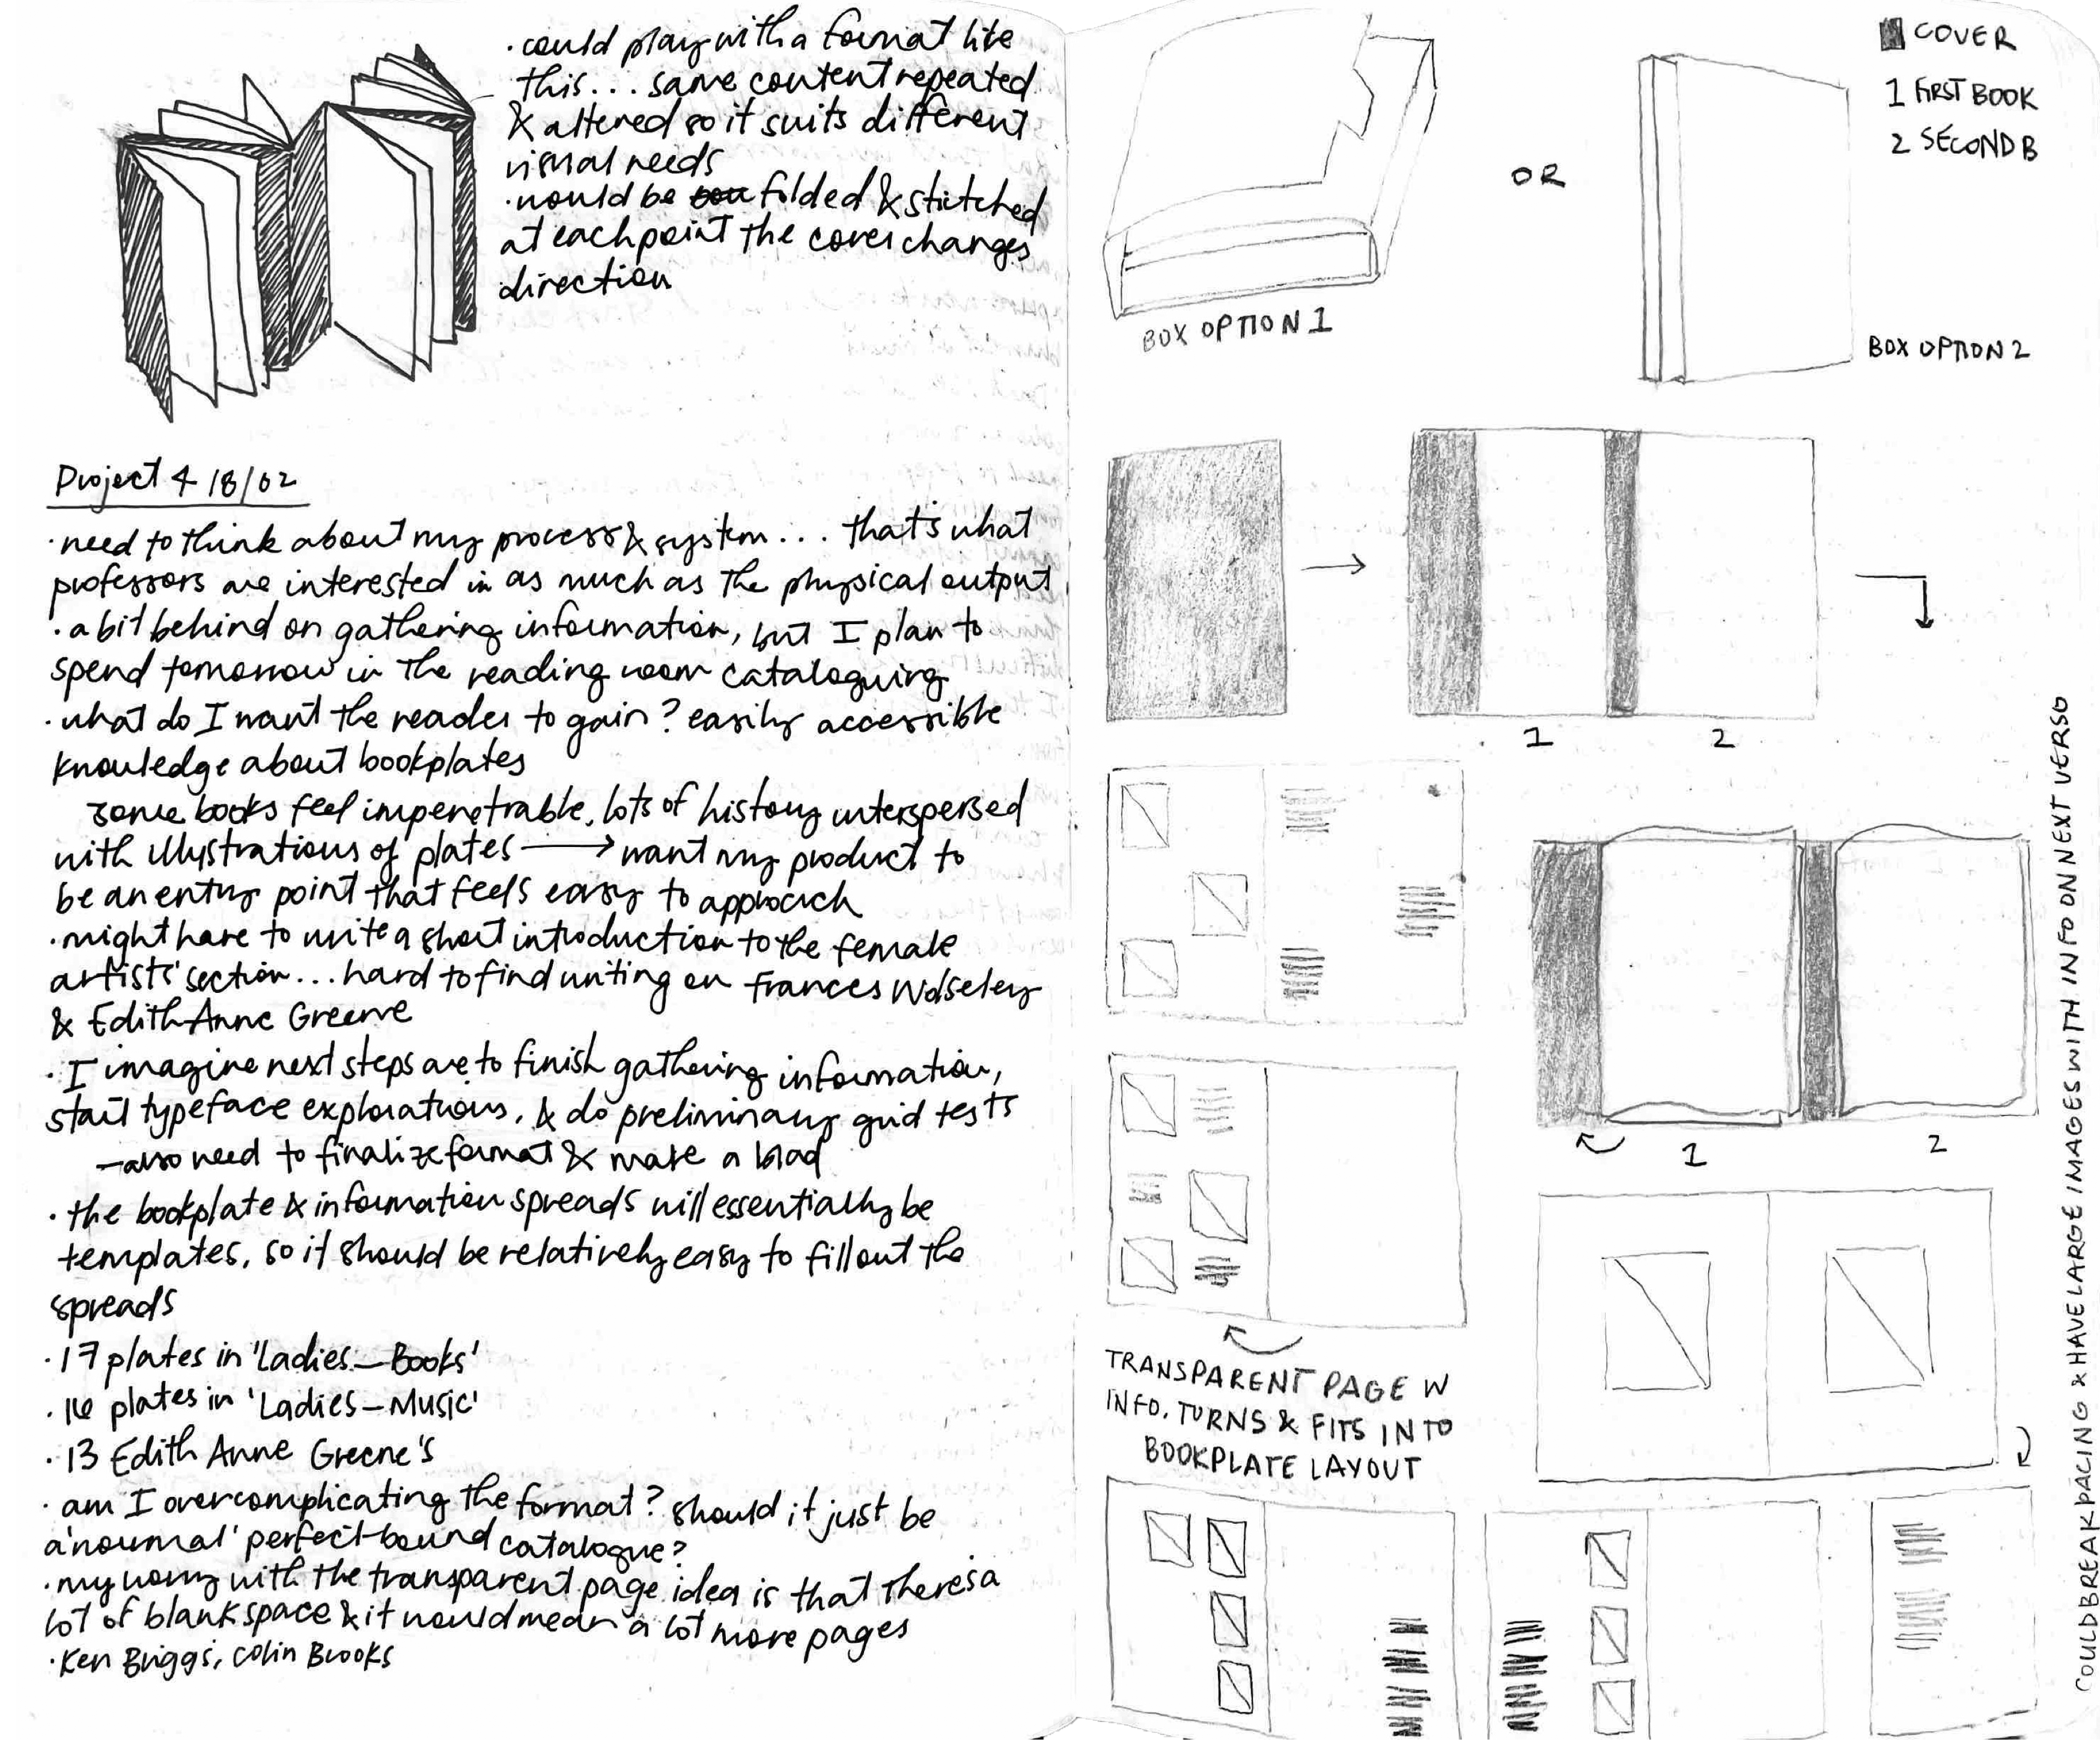 · could play with a format like
this... same content repeated
& altered so it suits different
visual needs
· would be folded & stitched
at each point the cover changes
direction
Project 4 18/02
· need to think about my process & system... that's what
professors are interested in as much as the physical output
· a bit behind on gathering information, but I plan to
spend tomorrow in the reading room cataloguing
· what do I want the reader to gain? easily accessible
knowledge about bookplates
some books feel impenetrable, lots of history interspersed
with illustrations of plates → want my product to
be an entry point that feels easy to approach
· might have to write a short introduction to the female
artists' section... hard to find writing on Frances Wolseley
& Edith Anne Greene
· I imagine next steps are to finish gathering information,
start typeface explorations, & do preliminary grid tests
– also need to finalize format & make a blad
· the bookplate & information spreads will essentially be
templates, so it should be relatively easy to fill out the
spreads
· 17 plates in 'Ladies – Books'
· 16 plates in 'Ladies – Music'
· 13 Edith Anne Greene's
· am I overcomplicating the format? should it just be
a 'normal' perfect-bound catalogue?
· my worry with the transparent page idea is that there's a
lot of blank space & it would mean a lot more pages
· Ken Briggs, Colin Brooks
COVER
1 FIRST BOOK
2 SECOND B
OR
BOX OPTION 1
BOX OPTION 2
1 2
1 2
TRANSPARENT PAGE W
INFO. TURNS & FITS INTO
BOOKPLATE LAYOUT
COULD BREAK PACING & HAVE LARGE IMAGES WITH INFO ON NEXT VERSO